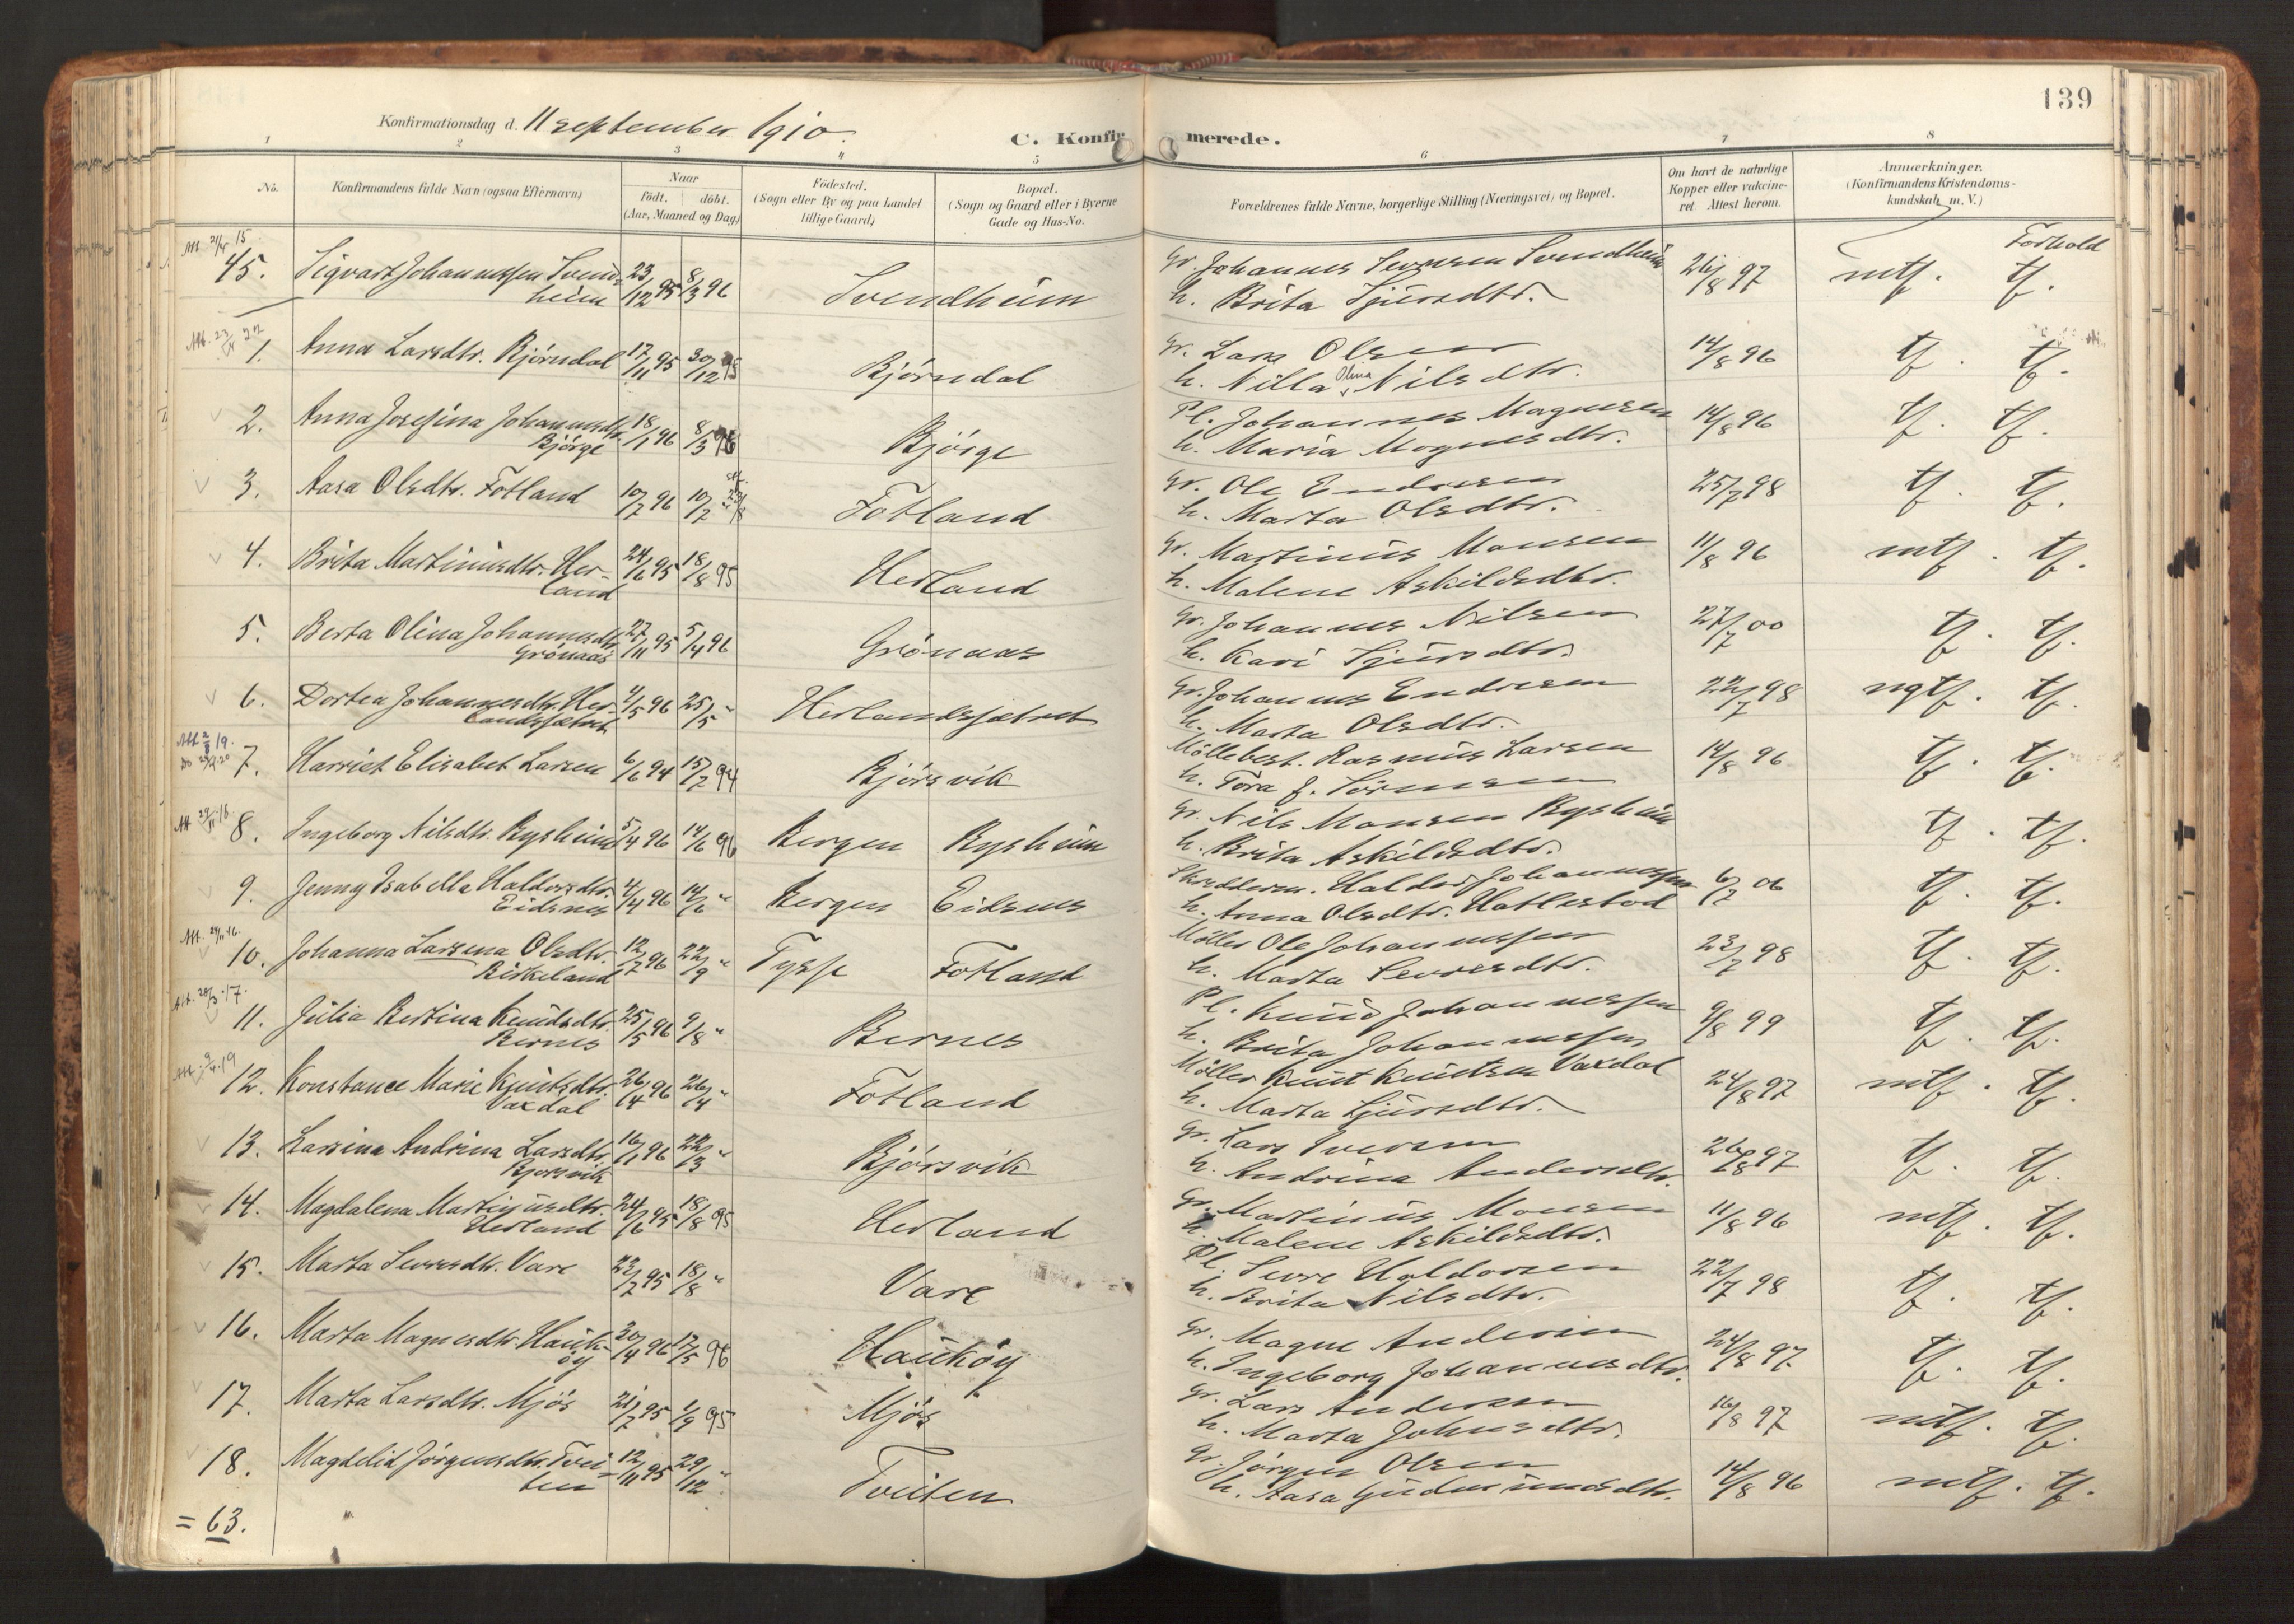 139
Konfirmationsdag d. 11 september 1910.
C. Konfirmerede.
1 2 3 4 5 6 7 8
No.
Konfirmandens fulde Navn (ogsaa Efternavn)
Naar
født. døbt.
(Aar, Maaned og Dag)
Fødested.
(Sogn eller By og paa Landet
tillige Gaard)
Bopæl.
(Sogn og Gaard eller i Byerne
Gade og Hus-No.
Forældrenes fulde Navne, borgerlige Stilling (Næringsvei) og Bopæl.
Om havt de naturlige
Kopper eller vakcine-
ret. Attest herom.
Anmærkninger.
(Konfirmandens Kristendoms-
kundskab m. V.)
Forhold
45. Sigvart Johannessen Svend-
heim 23/12 95 8/3 96 Svendheim Gr. Johannes Sevresen Svendheim
h. Brita Sjursdtr. 26/8 97 mtf. tf.
1. Anna Larsdtr. Bjørndal 17/11 95 30/12 95 Bjørndal Gr. Lars Olsen
h. Nilla Olina Nilsdtr. 14/8 96 tf. tf.
2. Anna Josefina Johannesdtr.
Bjørge 18/1 96 8/3 96 Bjørge Pl. Johannes Magnesen
h. Maria Magnesdtr. 14/8 96 tf. tf.
3. Aasa Olsdtr. Fotland 10/7 96 10/7 " 23/8 Fotland Gr. Ole Endresen
h. Marta Olsdtr. 25/7 98 tf. tf.
4. Brita Martinusdtr. Her-
land 24/6 95 18/8 95 Herland Gr. Martinus Monsen
h. Malene Askildsdtr. 11/8 96 mtf. tf.
5. Berta Olina Johannesdtr.
Grönaas 27/11 95 5/4 96 Grönaas Gr. Johannes Nilsen
h. Kari Sjursdtr. 27/7 00 tf. tf.
6. Dortea Johannesdtr. Her-
landssætret 4/5 96 25/5 " Herlandssætret Gr. Johannes Endresen
h. Marta Olsdtr. 22/7 98 ngtf. tf.
7. Harriet Elisabet Larsen 6/6 94 15/7 94 Bjørsvik Möllebest. Rasmus Larsen
h. Tora f. Sörensen 14/8 96 tf. tf.
8. Ingeborg Nilsdtr. Rypheim 5/4 96 14/6 96 Bergen Rypheim Gr. Nils Monsen Rypheim
h. Brita Askildsdtr. tf. tf.
9. Jenny Isabella Haldorsdtr.
Eidsnes 4/4 96 14/6 " Bergen Eidsnes Skredderm. Haldor Johannessen
h. Anna Olsdtr. Hatlestad 6/7 06 tf. tf.
10. Johanna Larsena Olsdtr.
Birkeland 12/7 96 22/9 " Tysse Fotland Möller Ole Johannessen
h. Marta Sevresdtr. 23/7 98 tf. tf.
11. Julia Bertina Knudsdtr.
Bernes 25/5 96 9/8 " Bernes Pl. Knud Johannessen
h. Brita Johannessen 9/8 99 tf. tf.
12. Konstance Marie Knutsdtr.
Vaxdal 26/4 96 26/4 " Fotland Möller Knut Knutsen Vaxdal
h. Marta Sjursdtr. 24/8 97 mtf. tf.
13. Larsina Andrina Larsdtr.
Bjorsvik 16/1 96 22/3 " Bjørsvik Gr. Lars Iversen
h. Andrina Andersdtr. 26/8 97 tf. tf.
14. Magdalena Martinusdtr.
Herland 24/6 95 18/8 95 Herland Gr. Martinus Monsen
h. Malene Askildsdtr. 11/8 96 mtf. tf.
15. Marta Sevresdtr. Vare 23/7 95 18/8 " Vare Pl. Sevre Haldorsen
h. Brita Nilsdtr. 22/7 98 tf. tf.
16. Marta Magnesdtr. Hauk-
öy 20/4 96 17/5 96 Hauköy Gr. Magne Andersen
h. Ingeborg Johannesdtr. 24/8 97 tf. tf.
17. Marta Larsdtr. Mjös 21/7 95 1/9 95 Mjös Gr. Lars Andersen
h. Marta Johnsdtr. 16/8 97 mtf. tf.
18. Magdelid Jörgensdtr. Tvei-
ten 12/11 95 29/12 " Tveiten Gr. Jörgen Olsen
h. Aasa Gudmundsdtr. 14/8 96 mtf. tf.
= 63.